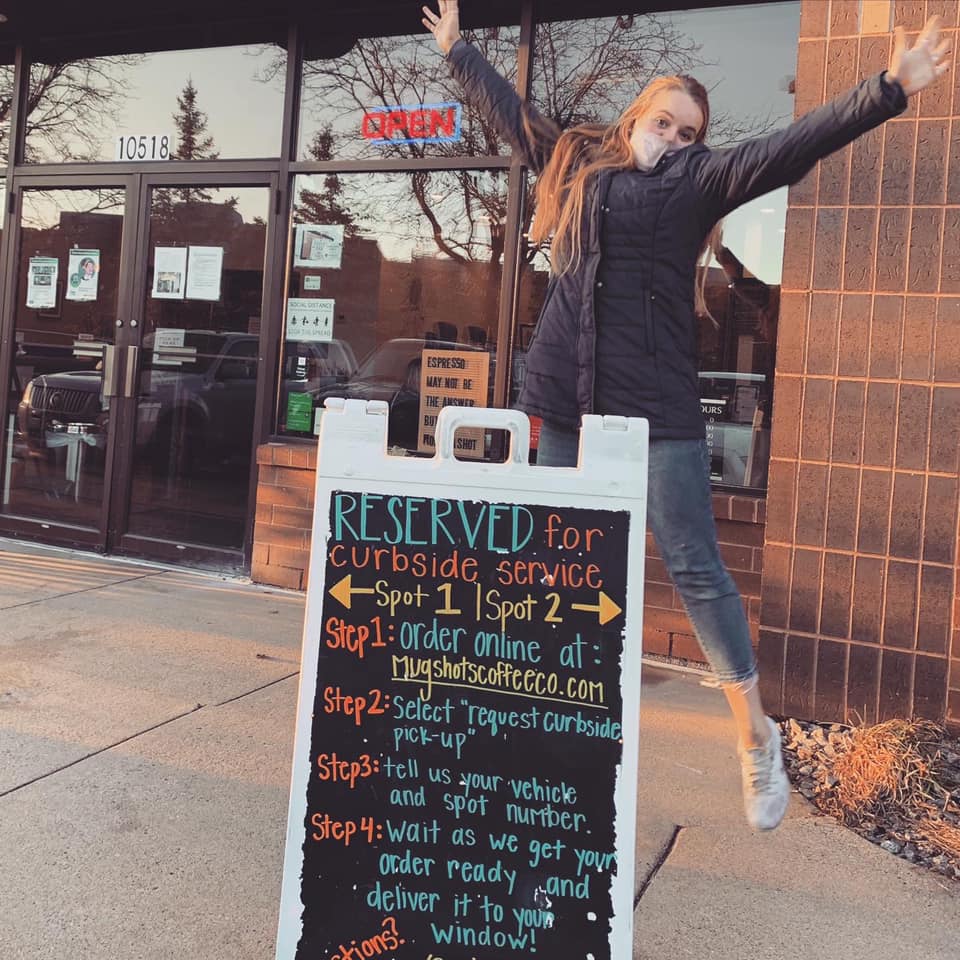 10518
OPEN
SOCIAL DISTANCE
STOP THE SPREAD
ESPRESSO
MAY NOT BE
THE ANSWER
SHOT
RESERVED for
curbside service
Spot 1 | Spot 2
Step1: Order online at:
Mugshotscoffeeco.com
Step2: Select "request curbside
pick-up"
Step3: tell us your vehicle
and spot number.
Step 4: wait as we get your
order ready and
deliver it to your
window!